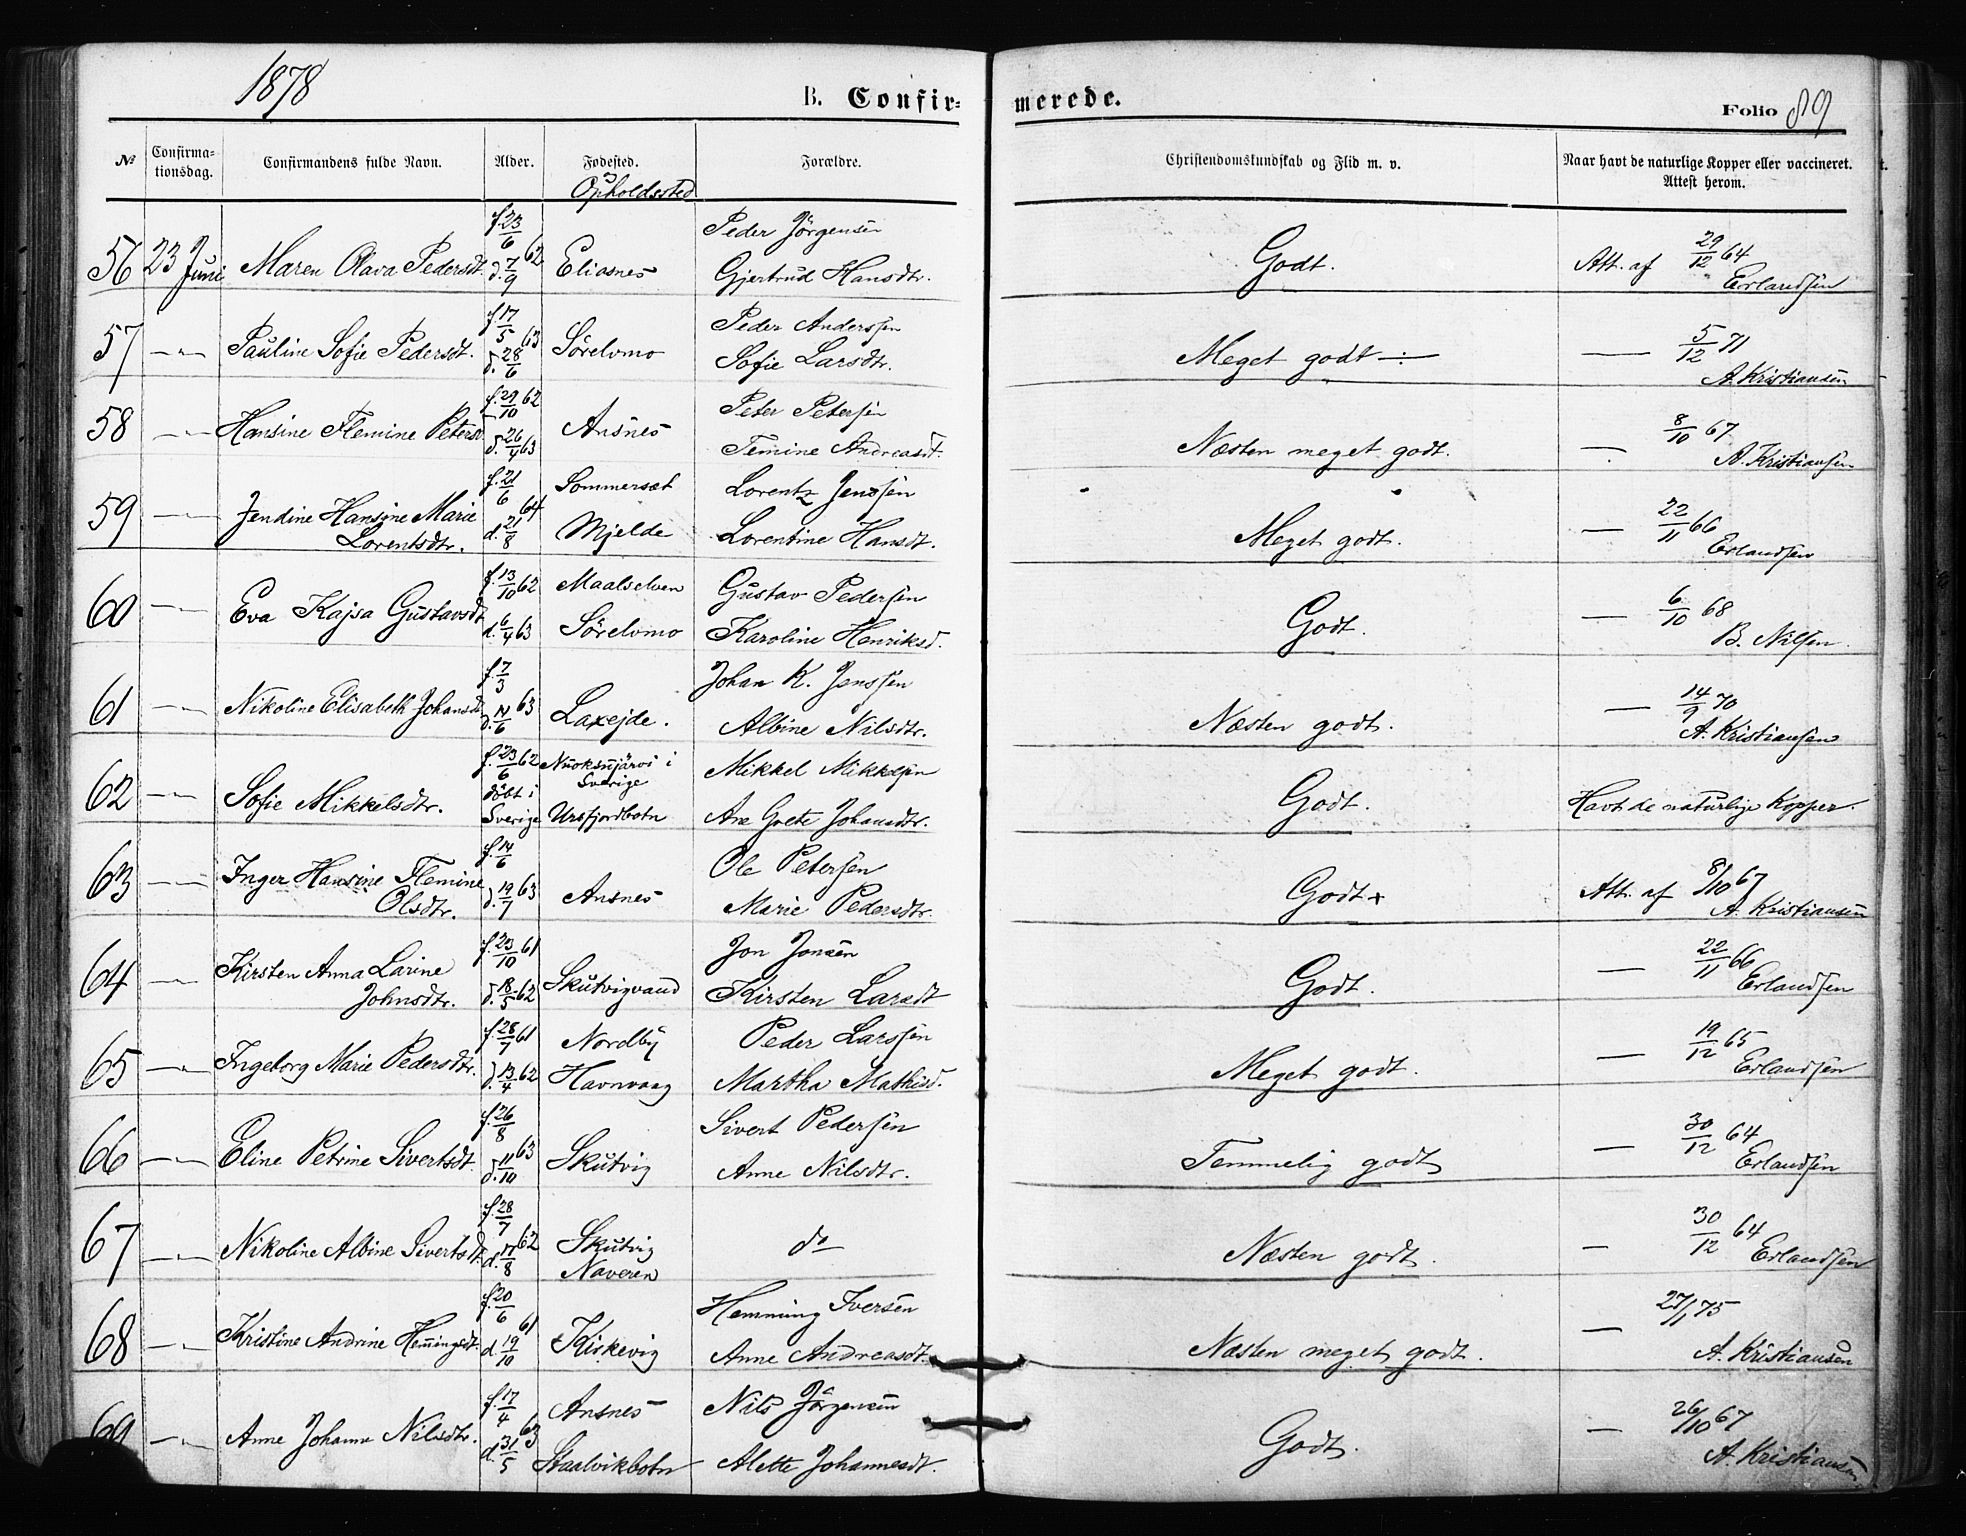 1878
B. Confir-
merede.
Folio 89
№ Confirma-tionsdag. Confirmandens fulde Navn. Alder. Fødested. Forældre. Christendomskundskab og Flid m. v. Naar havt de naturlige Kopper eller vaccineret. Attest herom.
Opholdssted
f. 23/6 Peder Jörgensen
56 23 Juni Maren Olava Pedersdt. d. 7/9 62 Eliasnes Gjertrud Hansdtr. Godt. Att. af 29/12 64 Erlandsen
f. 17/5 Peder Anderssen
57 —"— Pauline Sofie Pedersdt. d. 28/6 63 Sörelvmo Sofie Larsdtr. Meget godt ÷ — 5/12 71 A. Kristiansen
f. 29/10 62 Peter Petersen
58 —"— Hansine Flemine Petersd d. 26/4 63 Ansnes Femine Andreasdt. Næsten meget godt. — 8/10 67 A. Kristiansen
f. 21/6 Sommersæt Lorentz Jenssen
59 —"— Jendine Hansine Marie Lorentsdtr. d. 21/8 64 Mjelde Lorentine Hansdt. Meget godt. — 22/11 66 Erlandsen
f. 13/10 62 Maalselven Gustav Pedersen
60 —"— Eva Kajsa Gustavsdt d. 6/4 63 Sörelvmo Karoline Henriksd. Godt. — 6/10 68 B. Nilsen
f. 7/3 Johan K. Jenssen
61 —"— Nikoline Elisabeth Johansd d. /6 63 Laxejde. Albine Nilsdtr. Næsten godt. — 14/9 70 A. Kristiansen
f. 23/6 62 i Sverige Mikkel Mikkelsen
62 —"— Sofie Mikkelsdtr. döbt i Sverige Ursfjordbotn Ane Grete Johansdtr. Godt. Havt de naturlige Kopper.
f. 14/6 Ole Petersen
63 —"— Inger Hansine Flemine Olsdtr. d. 19/7 63 Ansnes Marie Pedersdtr. Godt+ Att. af 8/10 67 A. Kristiansen
f. 23/10 61 Jon Jonsen
64 —"— Kirsten Anna Larine Johnsdtr. d. 18/5 62 Skutvigvand Kirsten Larsdt Godt. — 22/11 66 Erlandsen
f. 28/7 61 Nordby Peder Larssen
65 —"— Ingeborg Marie Pedersdtr. d. 13/4 62 Havnvaag Martha Mathisd. Meget godt. — 19/12 65 Erlandsen
f. 26/8 Sivert Pedersen
66 —"— Eline Petrine Sivertsdt. d. 11/10 63 Skutvig Anne Nilsdtr. Temmelig godt — 30/12 64 Erlandsen
f. 28/7
67 —"— Nikoline Albine Sivertsdt. d. 17/8 62 Skutvig Naveren do Næsten godt. — 30/12 64 Erlandsen
f. 20/6 Hemming Iversen
68 —"— Kristine Andrine Hemingsdt. d. 19/10 61 Kiskevig Anne Andreasdt. Næsten meget godt. — 27/1 75 A. Kristiansen
f. 17/4 Ansnes Nils Jörgensen
69 —"— Anne Johanne Nilsdtr. d. 31/5 63 Staalvikbotn Alette Johannesdt. Godt. — 26/10 67 A. Kristiansen